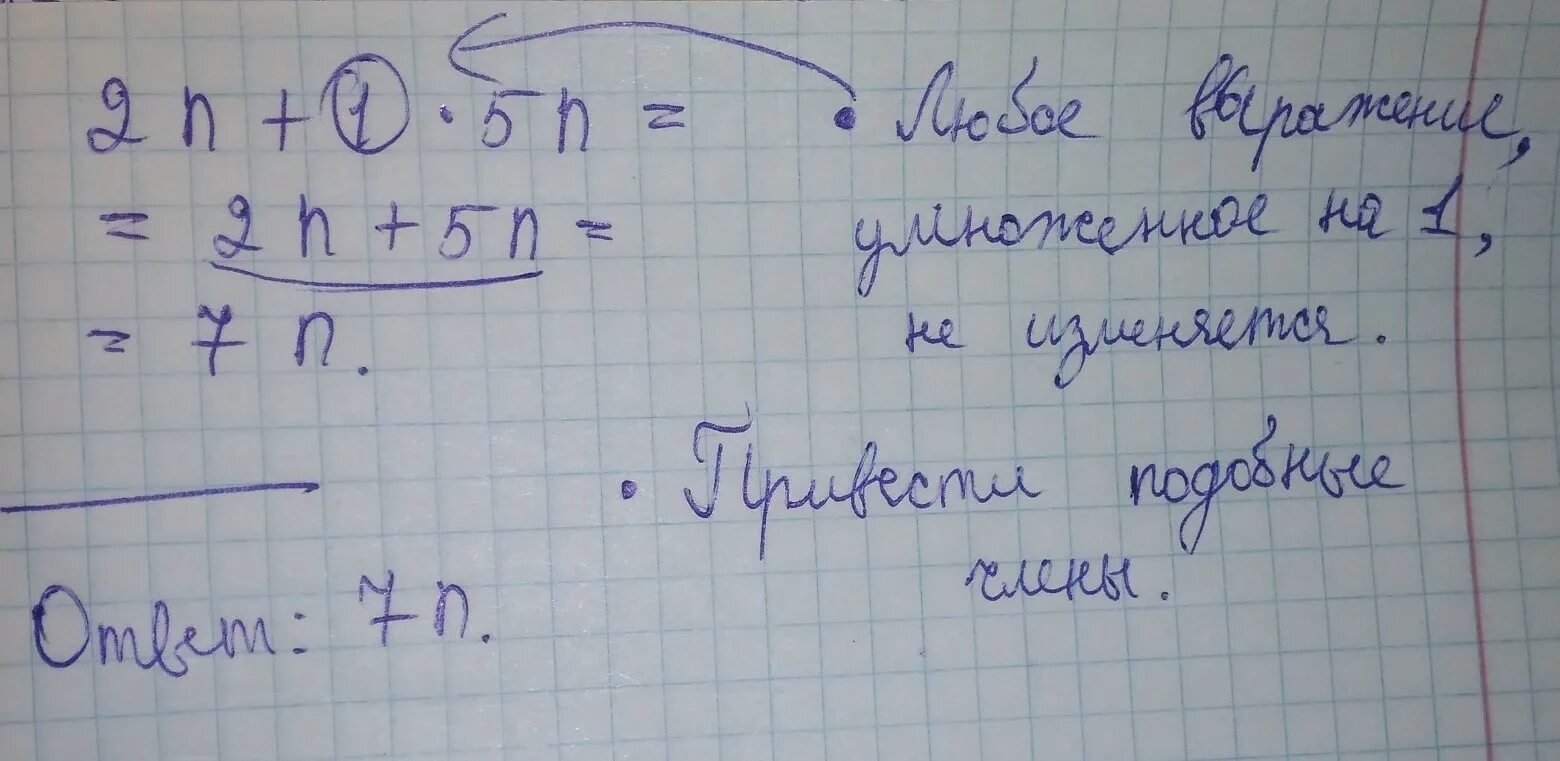 2n + 1 · 5n =
= 2n + 5n =
= 7n.
• Любое выражение,
умноженное на 1,
не изменяется.
• Привести подобные
члены.
Ответ: 7n.